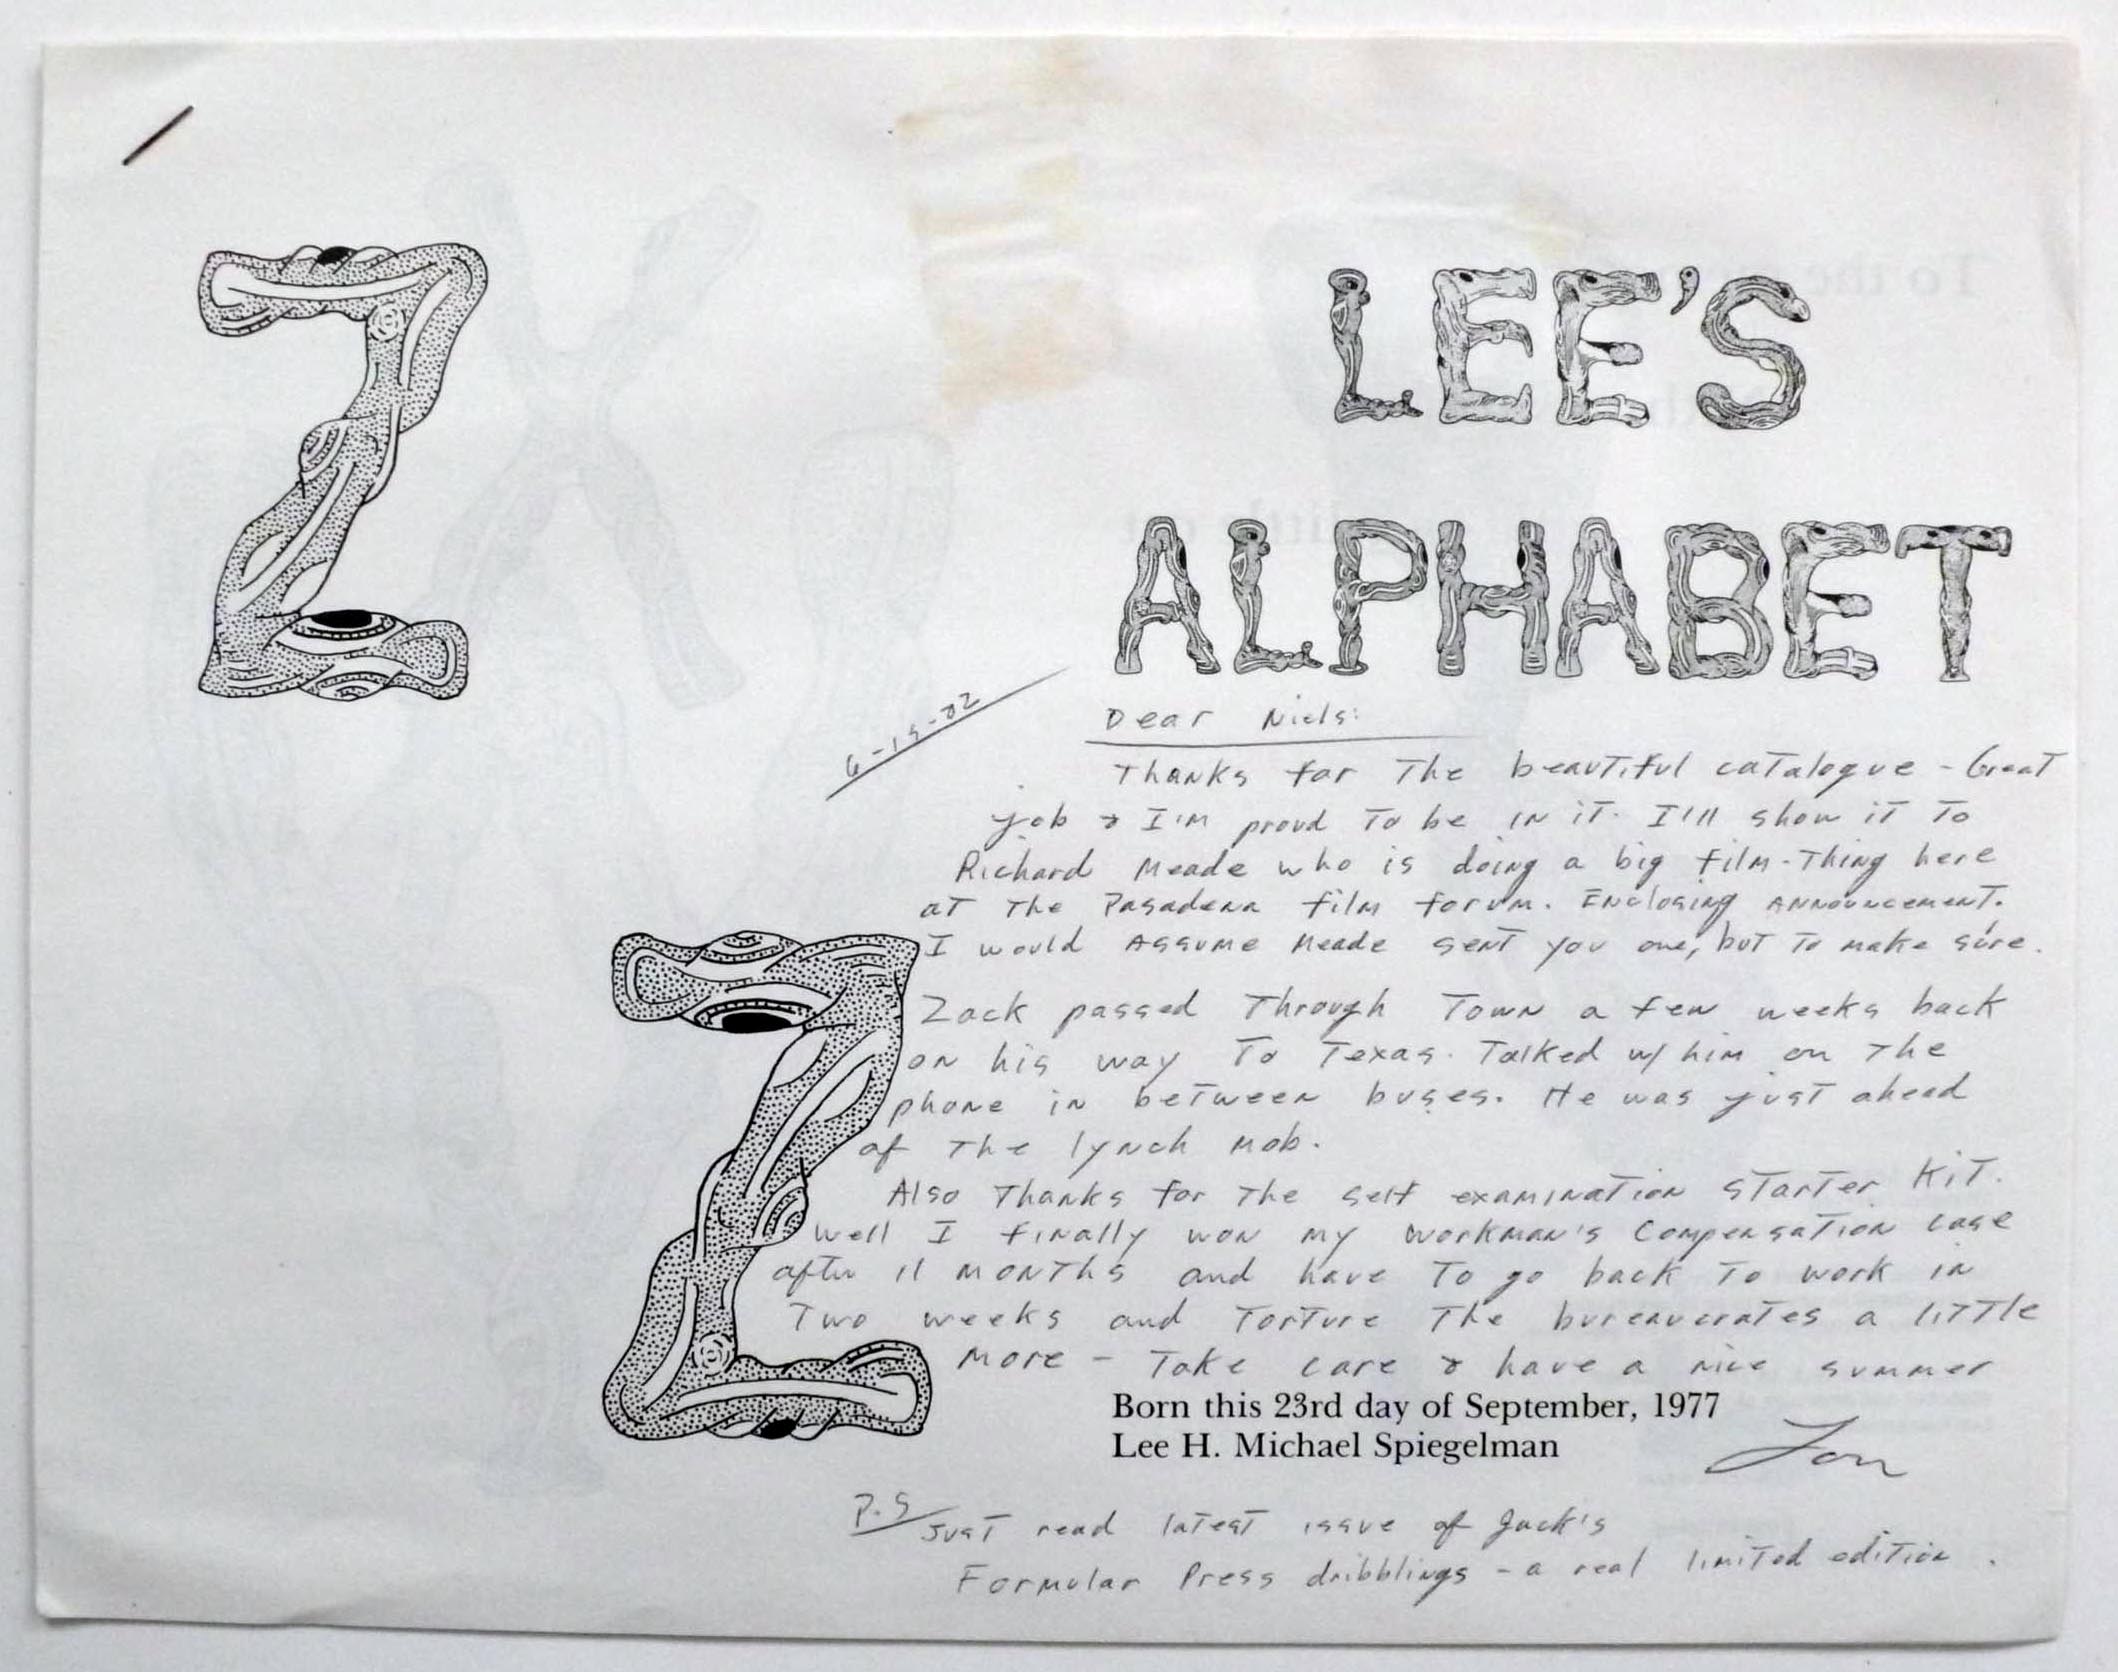 Z
LEE'S
ALPHABET
6-15-82
Dear Niels:
Thanks for the beautiful catalogue - Great
job & I'm proud to be in it. I'll show it to
Richard Meade who is doing a big film-thing here
at the Pasadena film forum. Enclosing announcement.
I would assume Meade sent you one, but to make sure.
Z
Zack passed through town a few weeks back
on his way to Texas. Talked w/ him on the
phone in between buses. He was just ahead
of the lynch mob.
Also thanks for the self examination starter kit.
Well I finally won my workman's compensation case
after 11 months and have to go back to work in
two weeks and torture the bureaucrates a little
more - Take care & have a nice summer
Born this 23rd day of September, 1977
Lee H. Michael Spiegelman
Lon
P.S Just read latest issue of Jack's
Formular Press dribblings - a real limited edition.